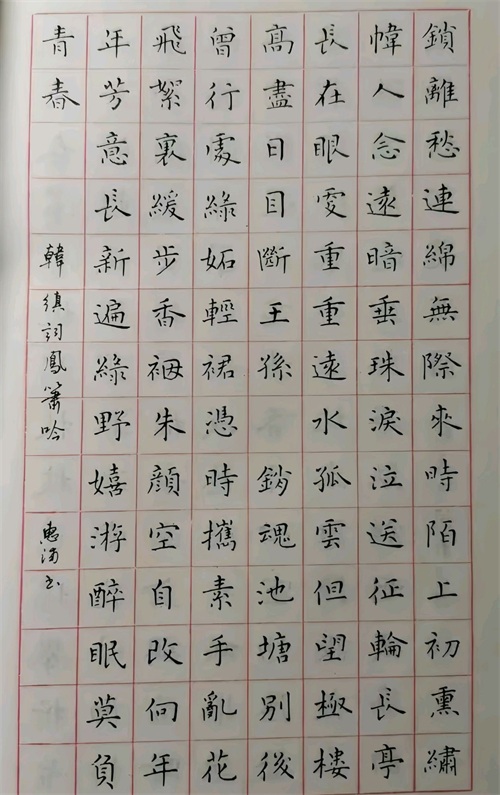 鎖離愁連綿無際來時陌上初熏繡
幃人念遠暗垂珠淚泣送征輪長亭
長在眼雯重重遠水孤雲但望極樓
高盡日目斷王孫銷魂池塘別後
曾行處綠妬輕裙憑時攜素手亂花
飛絮裏緩步香裀朱顏空自改向年
年芳意長新遍綠野嬉游醉眠莫負
青春 韓縝詞鳳簫吟 惠书